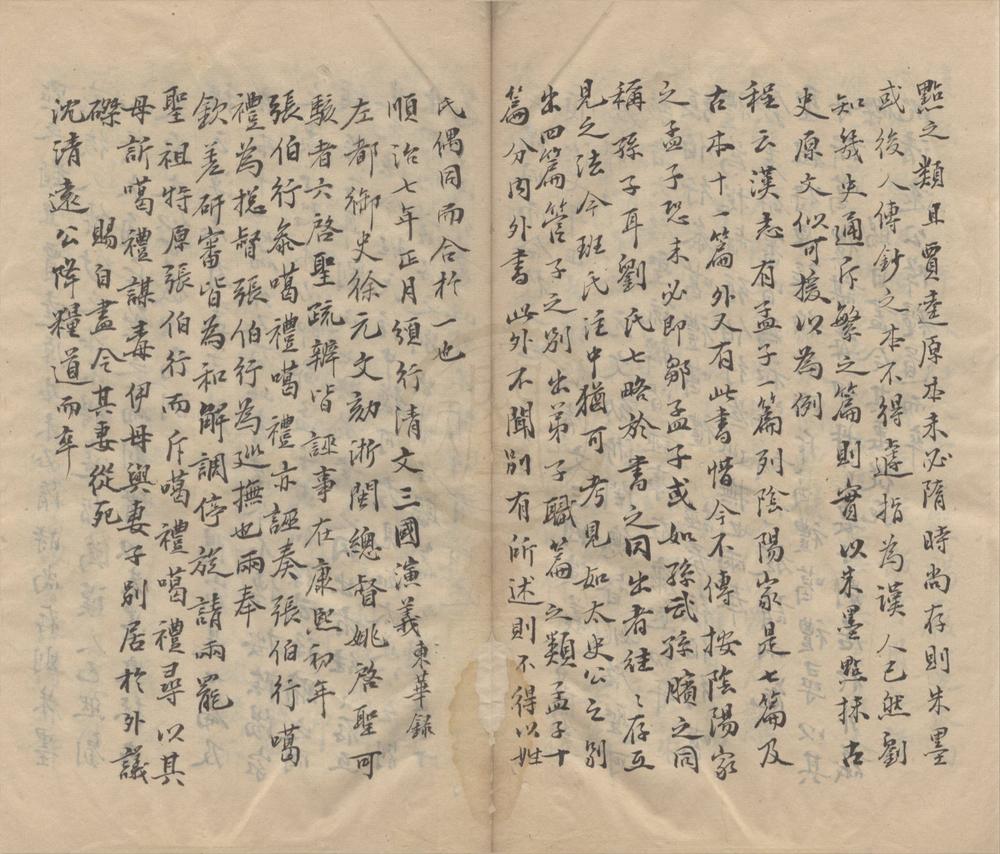 點之類且賈逵原本未必隋時尚存則朱墨
或後人傳鈔之本不得遽指為漢人已然劉
知幾史通斥繁之篇則實以朱墨點抹古
史原文似可援以為例
程云漢志有孟子一篇列陰陽家是七篇及
古本十一篇外又有此書惜今不傳按陰陽家
之孟子恐未必即鄒孟子或如孫武孫臏之同
稱孫子耳劉氏七略於書之同出者往〻存互
見之法今班氏注中猶可考見如太史公之別
出四篇管子之別出弟子職篇之類孟子十一
篇分內外書此外不聞別有所述則不得以姓
氏偶同而合於一也
順治七年正月頒行清文三國演義東華錄
左都御史徐元文劾浙閩總督姚啓聖可
駭者六啓聖疏辨皆誣事在康熙初年
張伯行叅噶禮噶禮亦誣奏張伯行噶
禮為總督張伯行為巡撫也兩奉
欽差研審皆為和解調停旋請兩罷
聖祖特原張伯行而斥噶禮噶禮尋以其
母訴噶禮謀毒伊母與妻子別居於外議
磔賜自盡令其妻從死
沈清遠公降糧道而卒